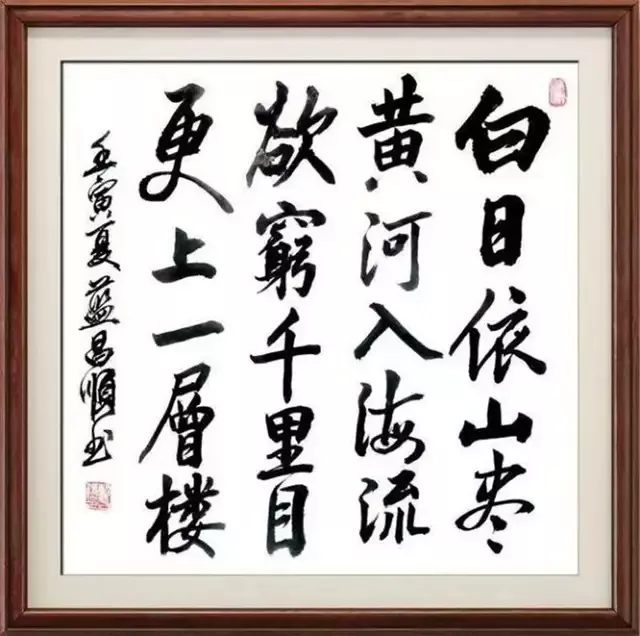 白日依山尽
黄河入海流
欲窮千里目
更上一層楼
壬寅夏藍昌順书